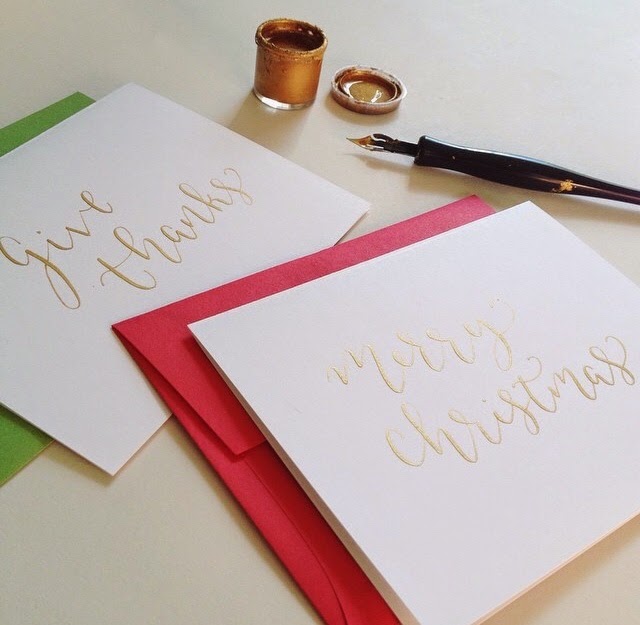 give
thanks
merry
christmas